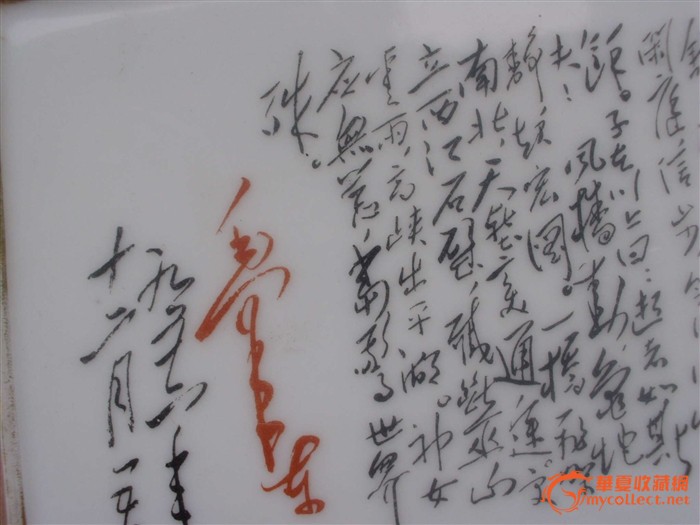 闲庭信步
馀。子在川上曰:逝者如斯
夫!风樯动,龟蛇
静,起宏图。一桥飞架
南北,天堑变通途
立西江石壁,截断巫山
云雨,高峡出平湖。神女
应無恙,当惊世界
殊。
毛泽东
一九五六年
十二月